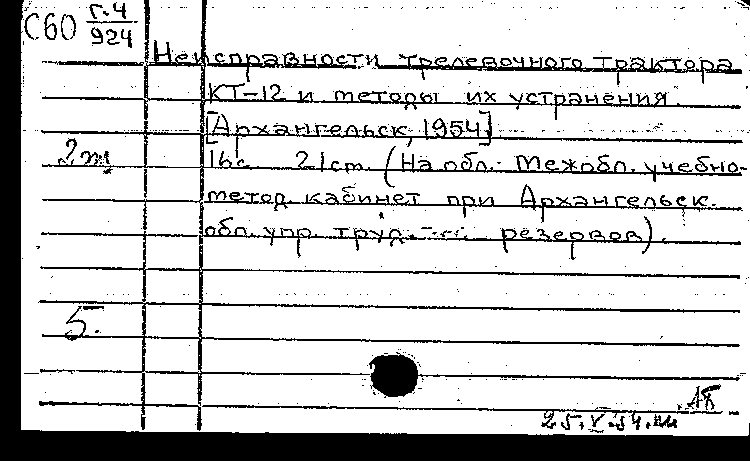 С60 Г.4
924
Неисправности трелевочного трактора
КТ-12 и методы их устранения.
[Архангельск, 1954]
16с. 21см. (На обл.: Межобл. учебно-
2т
метод. кабинет при Архангельск.
обл. упр. труд. резервов).
5.
25.V.54.